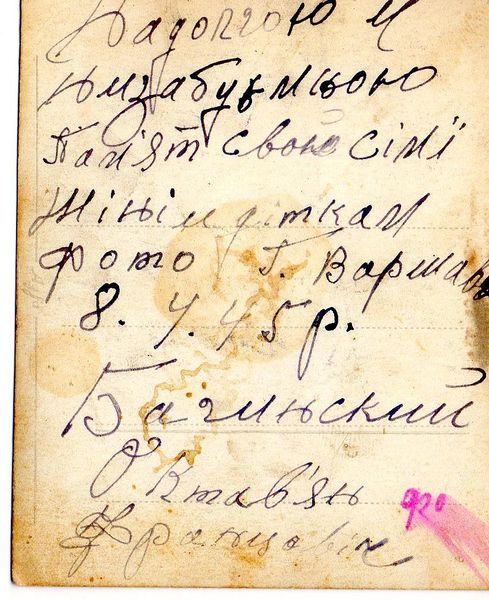 Надолгою и
незабутньою
Памʼят своий сімї
Жіні и діткам
Фото Г. Варшава
8. 4. 45 р.
Бачиньский
Октавʼян
Францовіч
920